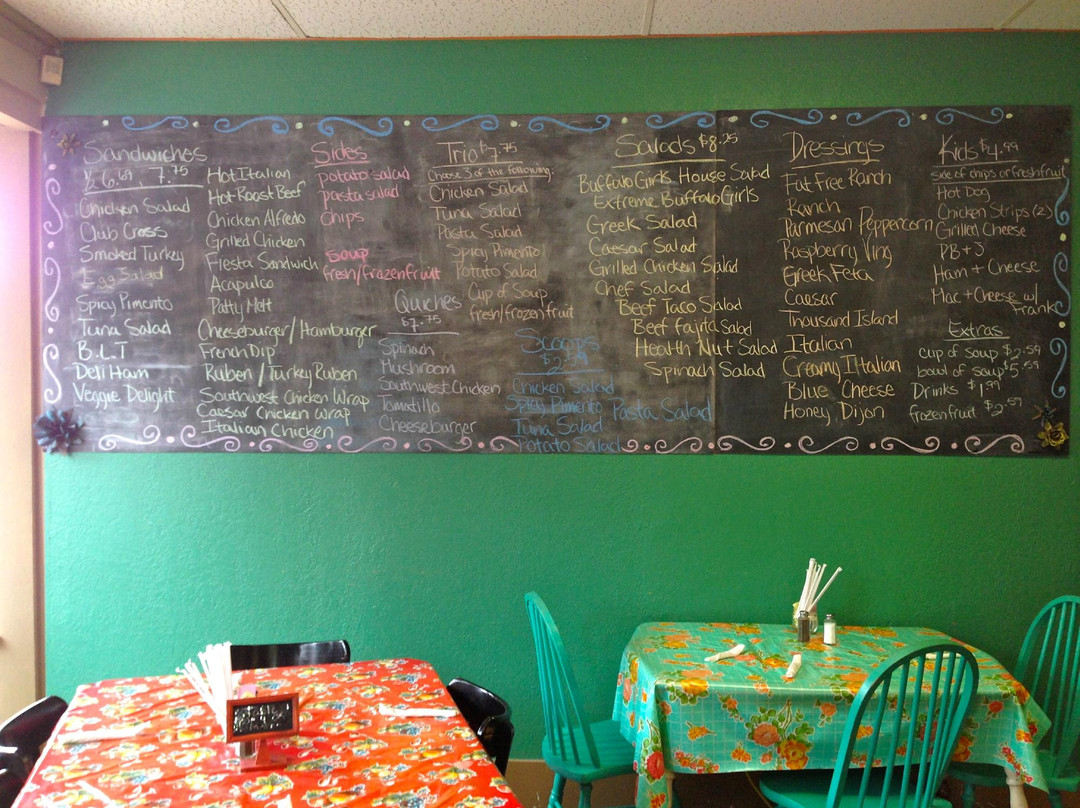 Sandwiches
½ 6.69, 7.75
Chicken Salad
Club Cross
Smoked Turkey
Egg Salad
Spicy Pimento
Tuna Salad
B.L.T
Deli Ham
Veggie Delight
Hot Italian
Hot Roast Beef
Chicken Alfredo
Grilled Chicken
Fiesta Sandwich
Acapulco
Patty Melt
Cheeseburger/Hamburger
French Dip
Ruben/Turkey Ruben
Southwest Chicken Wrap
Caesar Chicken Wrap
Italian Chicken
Sides
potato salad
pasta salad
chips
soup
fresh/frozen fruit
Trio $7.75
Choose 3 of the following:
Chicken Salad
Tuna Salad
Pasta Salad
Spicy Pimento
Potato Salad
Cup of Soup
fresh/frozen fruit
Quiches
$7.75
Spinach
Mushroom
Southwest Chicken
Tomatillo
Cheeseburger
Scoops
Chicken Salad
Spicy Pimento Pasta Salad
Tuna Salad
Potato Salad
Salads $8.25
Buffalo Girls House Salad
Extreme Buffalo Girls
Greek Salad
Caesar Salad
Grilled Chicken Salad
Chef Salad
Beef Taco Salad
Beef Fajita Salad
Health Nut Salad
Spinach Salad
Dressings
Fat Free Ranch
Ranch
Parmesan Peppercorn
Raspberry Ving
Greek Feta
Caesar
Thousand Island
Italian
Creamy Italian
Blue Cheese
Honey Dijon
Kids $4.99
side of chips or fresh fruit
Hot Dog
Chicken Strips (2)
Grilled Cheese
PB + J
Ham + Cheese
Mac + Cheese w/
Frank
Extras
cup of soup $2.59
bowl of soup $5.59
Drinks $1.99
frozen fruit $2.59